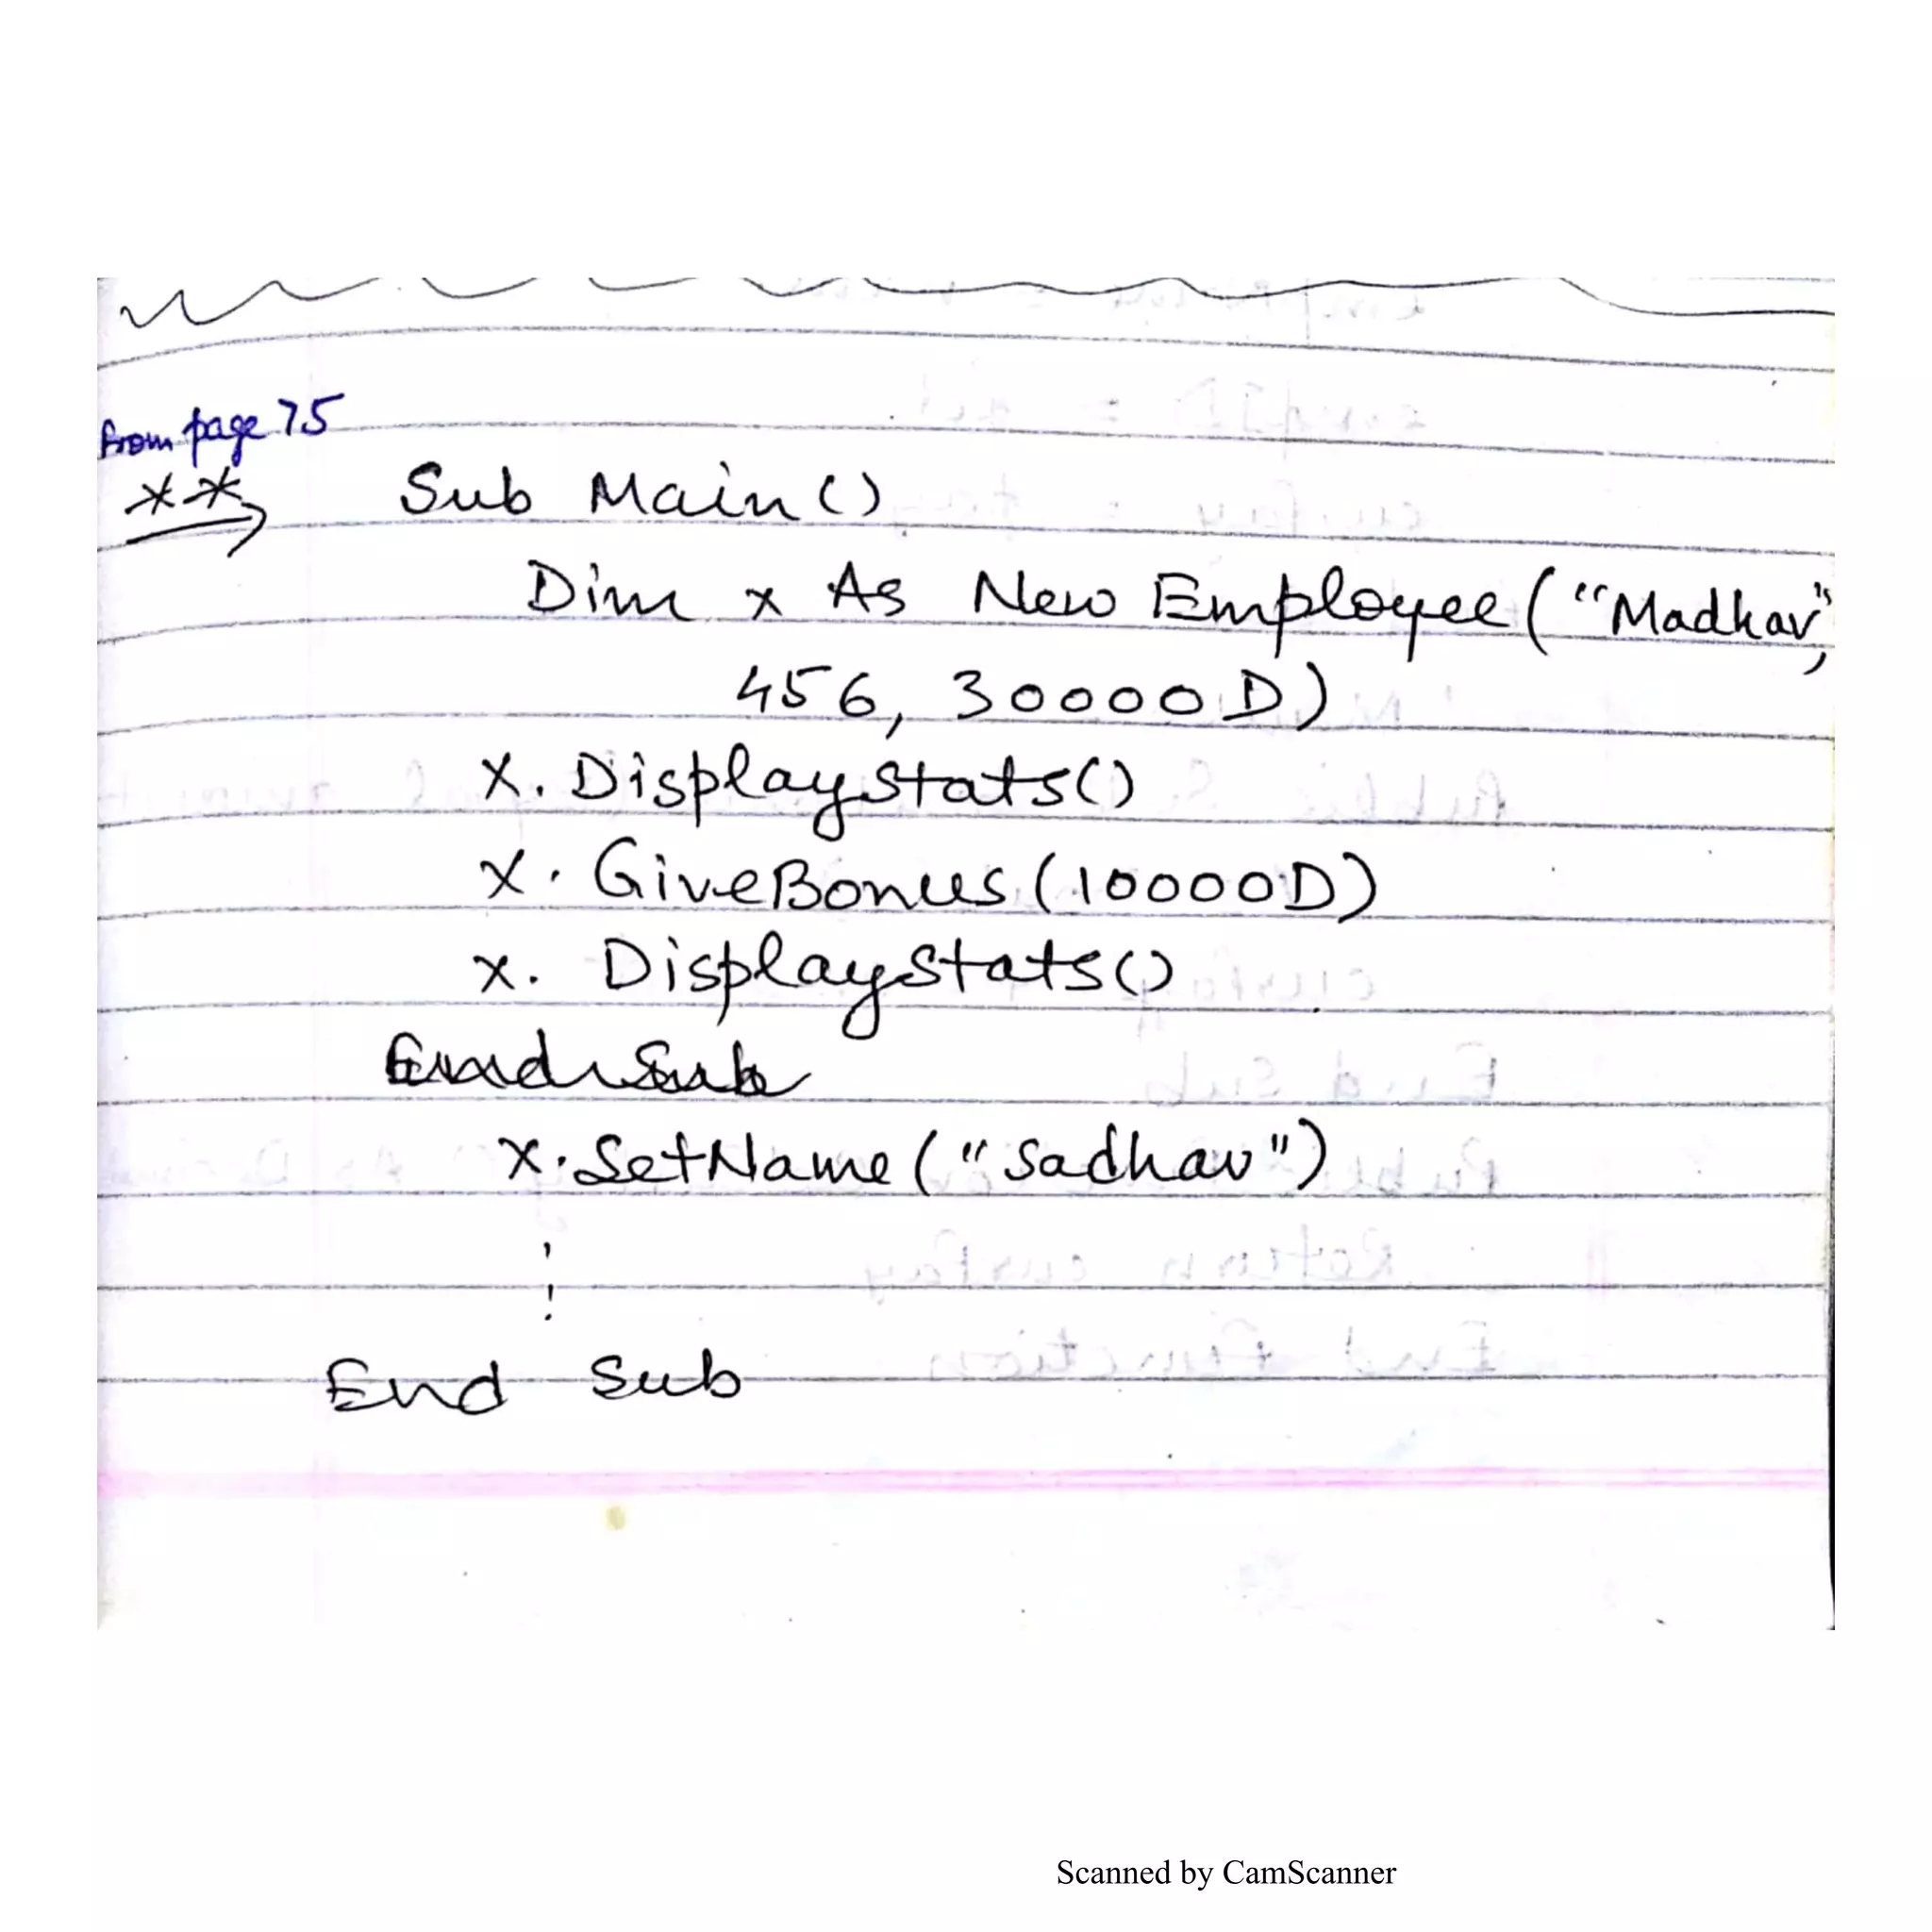 from page 75
** Sub Main()
Dim x As New Employee("Madhav",
456, 30000D)
X. DisplayStats()
X. GiveBonus(10000D)
X. DisplayStats()
End Sub
X. SetName("Sadhav")
End Sub
Scanned by CamScanner